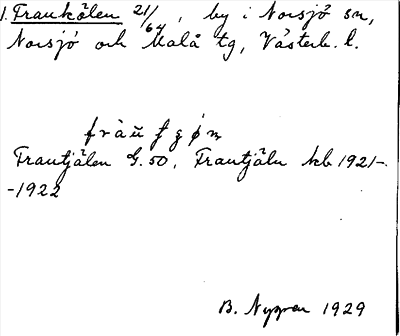 1. Fraukälen 21/64, by i Norsjö sn,
Norsjö och Malå tg, Västerb. l.
Frautjälen G. 50. Frautjäln kb 1921-
-1922
B. Nygren 1929